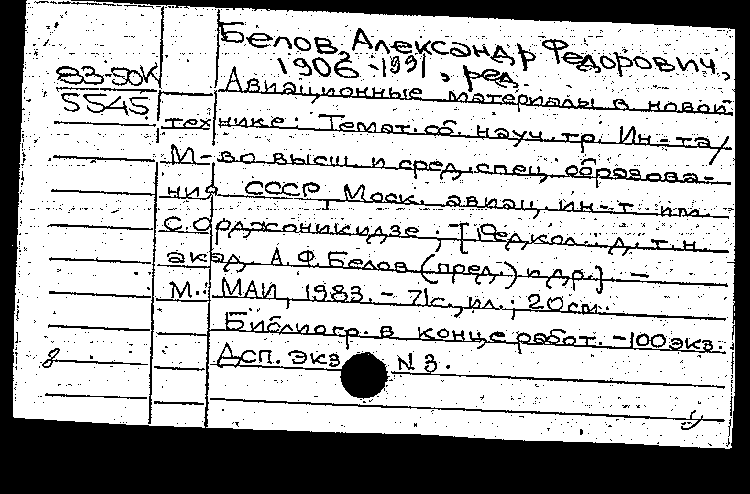 Белов, Александр Федорович,
1906-1991, ред.
83-50К
5545
Авиационные материалы в новой
технике: Темат. сб. науч. тр. Ин-та/
М-во высш. и сред. спец. образова-
ния СССР, Моск. авиац. ин-т им.
С. Орджоникидзе; [Редкол.: д.т.н.
акад. А.Ф. Белов (пред.) и др.]. -
М.: МАИ, 1983. - 71с., ил.; 20см.
Библиогр. в конце работ. - 100 экз.
Дсп. экз N 3.